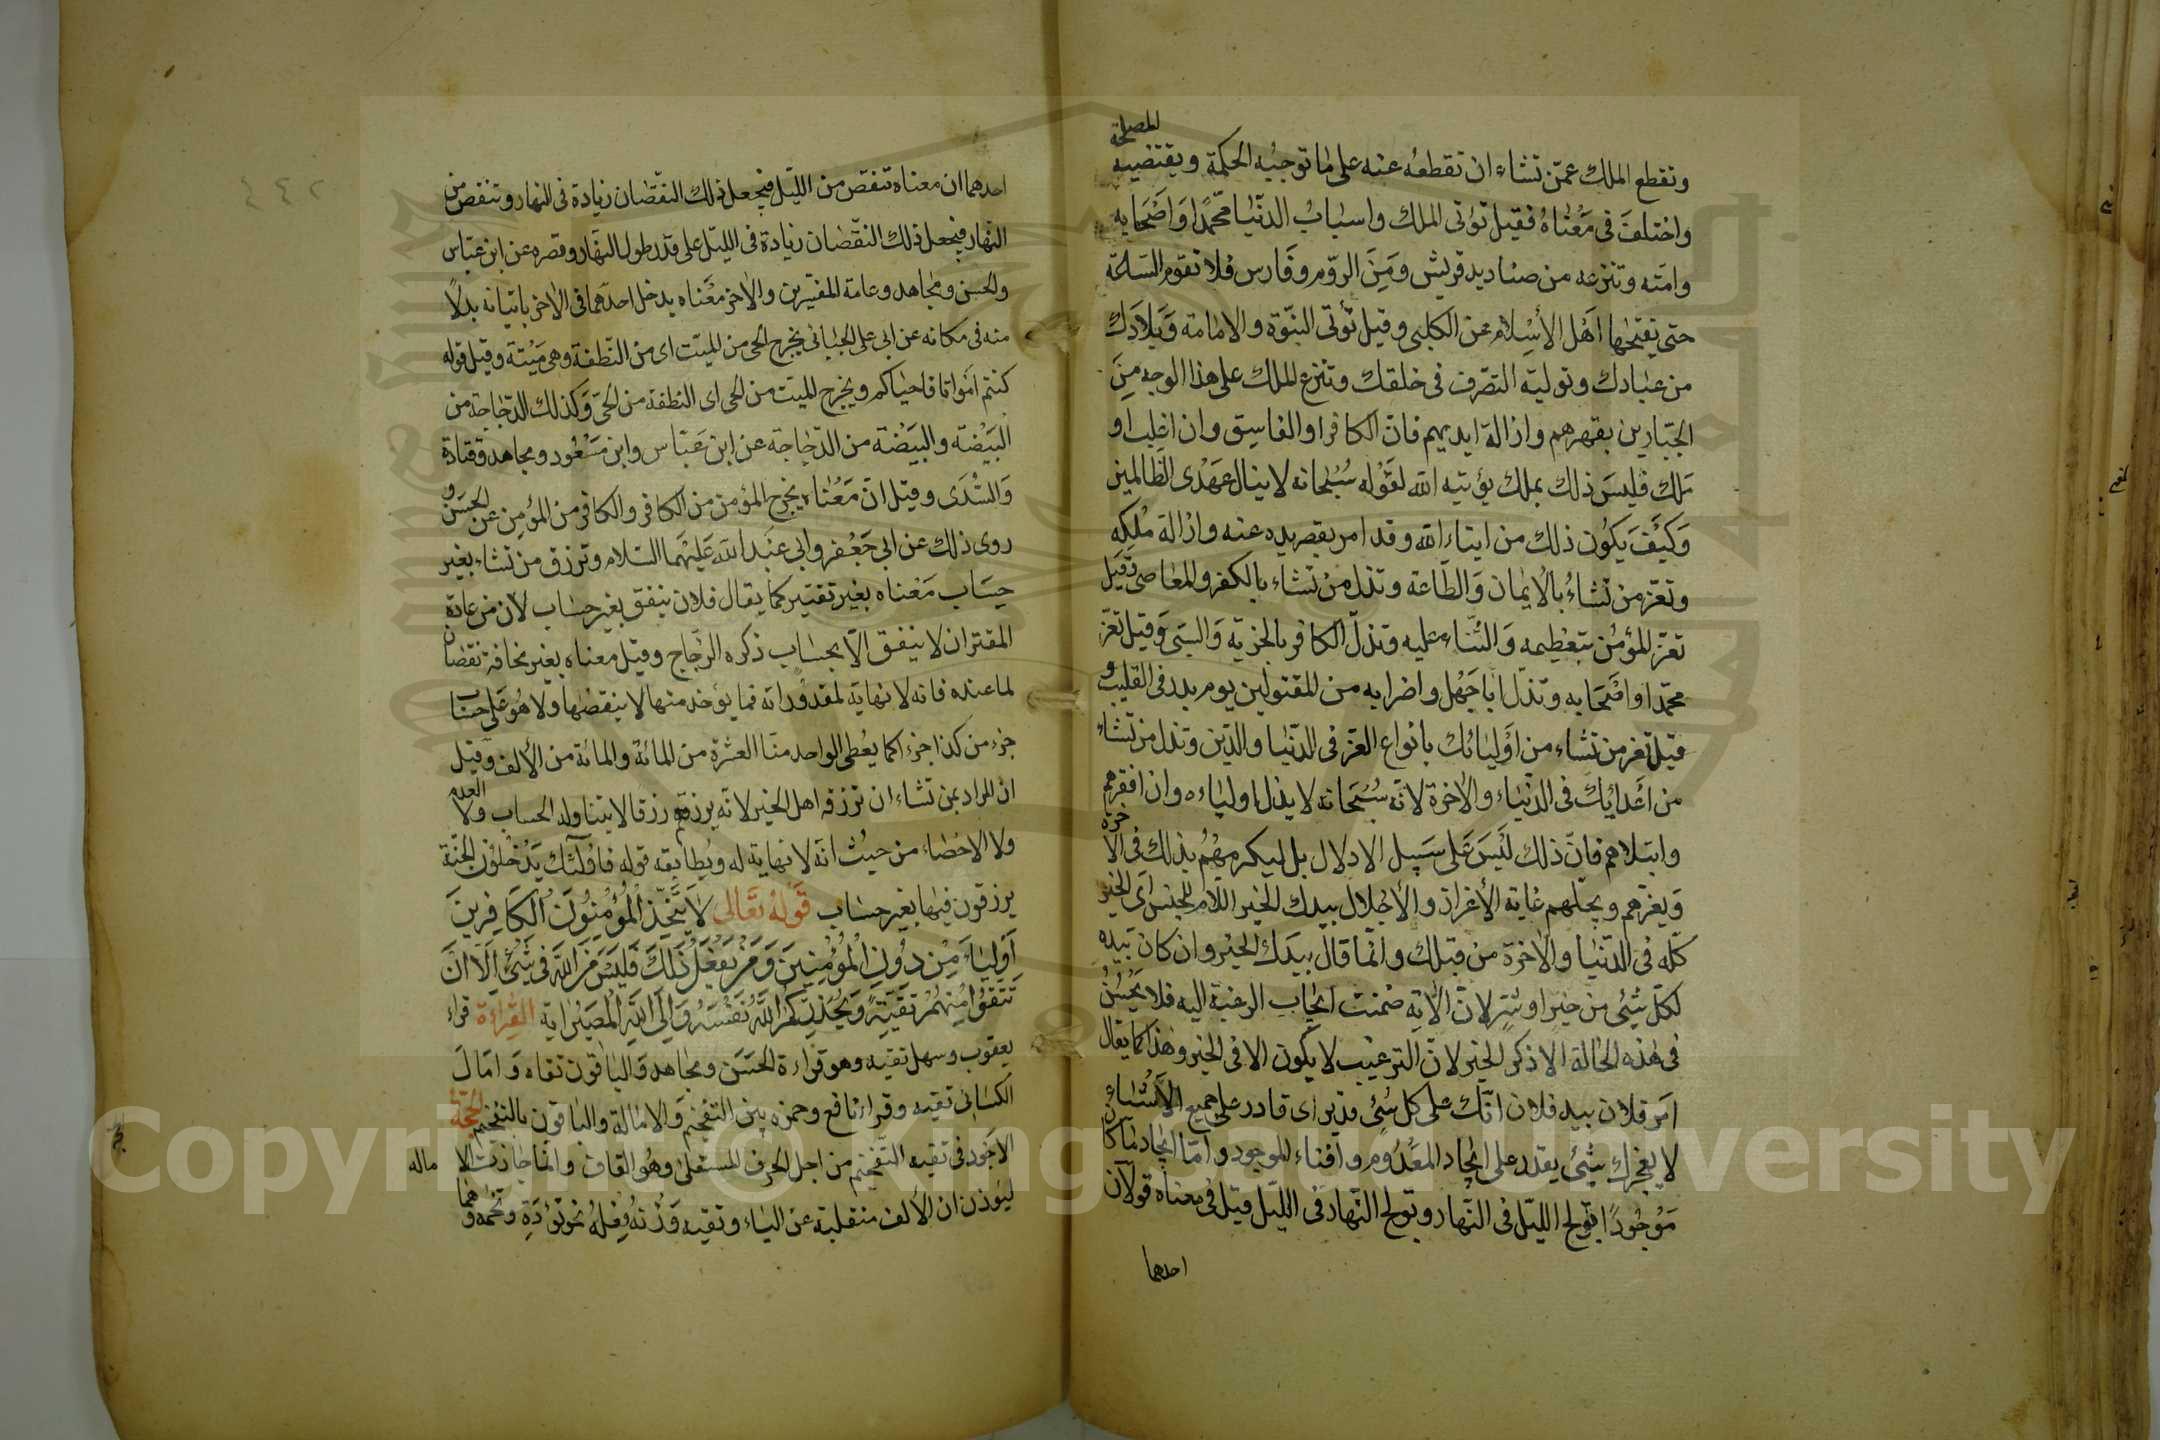 المصلحة
وتقطع الملك عمّن تشاء ان تقطعه عنه على ما توجبه الحكمة ويقتضيه
واختلف فى معناه فقيل تؤتى الملك واسباب الدنيا محمدا واصحابه
وامته وتنزعه من صناديد قريش ومن الروم وفارس فلا تقوم الساعة
حتى يفتحها اهل الأسلام عن الكلبى وقيل تؤتى النبوة والامامة وبلادك
من عبادك وتوليه التصرف فى خلقك وتنزع الملك على هذا الوجه من
الجبارين بقهرهم وازالة ايديهم فان الكافر او الفاسق وان اغلب او
ملك فليس ذلك بملك يؤتيه الله لقوله سبحانه لا ينال عهدى الظالمين
وكيف يكون ذلك من ايتاء الله وقد امر بقصر يده عنه وازالة ملكه
وتعز من تشاء بالايمان والطاعة وتذل من تشاء بالكفر والمعاصى وقيل
تعز المؤمن بتعظيمه والثناء عليه وتذل الكافر بالجزية والسبى وقيل تعز
محمدا واصحابه وتذل ابا جهل واضرابه من المقتولين يوم بدر فى القليب و
قيل تعز من تشاء من أوليائك بانواع العز فى الدنيا والدين وتذل من تشاء
من اعدائك فى الدنيا والاخرة لانه سبحانه لا يذل اولياءه وان افقرهم
وابتلاهم فان ذلك ليس على سبيل الاذلال بل ليكرمهم بذلك فى الا
خرة
ويعزهم ويجلهم غاية الأعزاز والأجلال بيدك الخير اللام للجنس اى الخير
كله فى الدنيا والاخرة من قبلك وانما قال بيدك الخير وان كان بيده
لكل شئ من خير او شر لان الآية ضمنت ايجاب الرغبة اليه فلا يحسن
فى هذه الحالة الا ذكر الخير لان الترغيب لا يكون الا فى الخير وهذا كما يقال
امر فلان بيد فلان انك على كل شئ قدير اى قادر على جميع الأشياء
لا يعجزك شئ يقدر على ايجاد المعدوم وافناء الموجود واما ايجاد ما كان
موجودا تولج الليل فى النهار وتولج النهار فى الليل قيل فى معناه قولان
احدهما
احدهما ان معناه تنقص من الليل فيجعل ذلك النقصان زيادة فى النهار وتنقص من
النهار فيجعل ذلك النقصان زيادة فى الليل على قدر طول النهار وقصره عن ابن عباس
والحسن ومجاهد وعامة المفسرين والاخر معناه يدخل احدهما فى الاخر باتيانه بدلا
منه فى مكانه عن ابى على الجبائى يخرج الحى من الميت اى من النطفة وهى ميتة وقيل قوله
كنتم امواتا فاحياكم ويخرج الميت من الحى اى النطفة من الحى وكذلك الدجاجة من
البيضة والبيضة من الدجاجة عن ابن عباس وابن مسعود ومجاهد وقتادة
والسدى وقيل ان معناه يخرج المؤمن من الكافر والكافر من المؤمن عن الحسن و
روى ذلك عن ابى جعفر وابى عبد الله عليهما السلام وترزق من تشاء بغير
حساب معناه بغير تقتير كما يقال فلان ينفق بغير حساب لان من عادة
المقتر ان لا ينفق الا بحساب ذكره الزجاج وقيل معناه بغير مخافة نقصان
لما عنده فانه لا نهاية لمقدوراته فما يؤخذ منها لا ينقصها ولا هو على حساب
جزء من كذا جزء اكما يعطى الواحد منا العشرة من المائة والمائة من الألف وقيل
ان المراد بمن تشاء ان ترزقه اهل الخير لانه يرزقهم رزقا لا يتناوله الحساب ولا العدم
ولا الاحصاء من حيث انه لا نهاية له ويطابقه قوله فاولئك يدخلون الجنة
يرزقون فيها بغير حساب قوله تعالى لا يتخذ المؤمنون الكافرين
أولياء من دون المؤمنين ومن يفعل ذلك فليس من الله فى شئ الا ان
تتقوا منهم تقية ويحذركم الله نفسه والى الله المصير اية القراءة قراء
يعقوب وسهل تقيه وهو قراءة الحسن ومجاهد والباقون تقاه وامال
الكسائى تقيه وقراء نافع وحمزه بين التفخيم والامالة والباقون بالتفخيم الحجة
الاجود فى تقيه التفخيم من اجل الحرف المستعلى وهو القاف وانما جازت الا
ماله
ليؤذن ان الالف منقلبة عن الياء وتقيه وزنه فعله نحو تؤدة وتخمه وهما